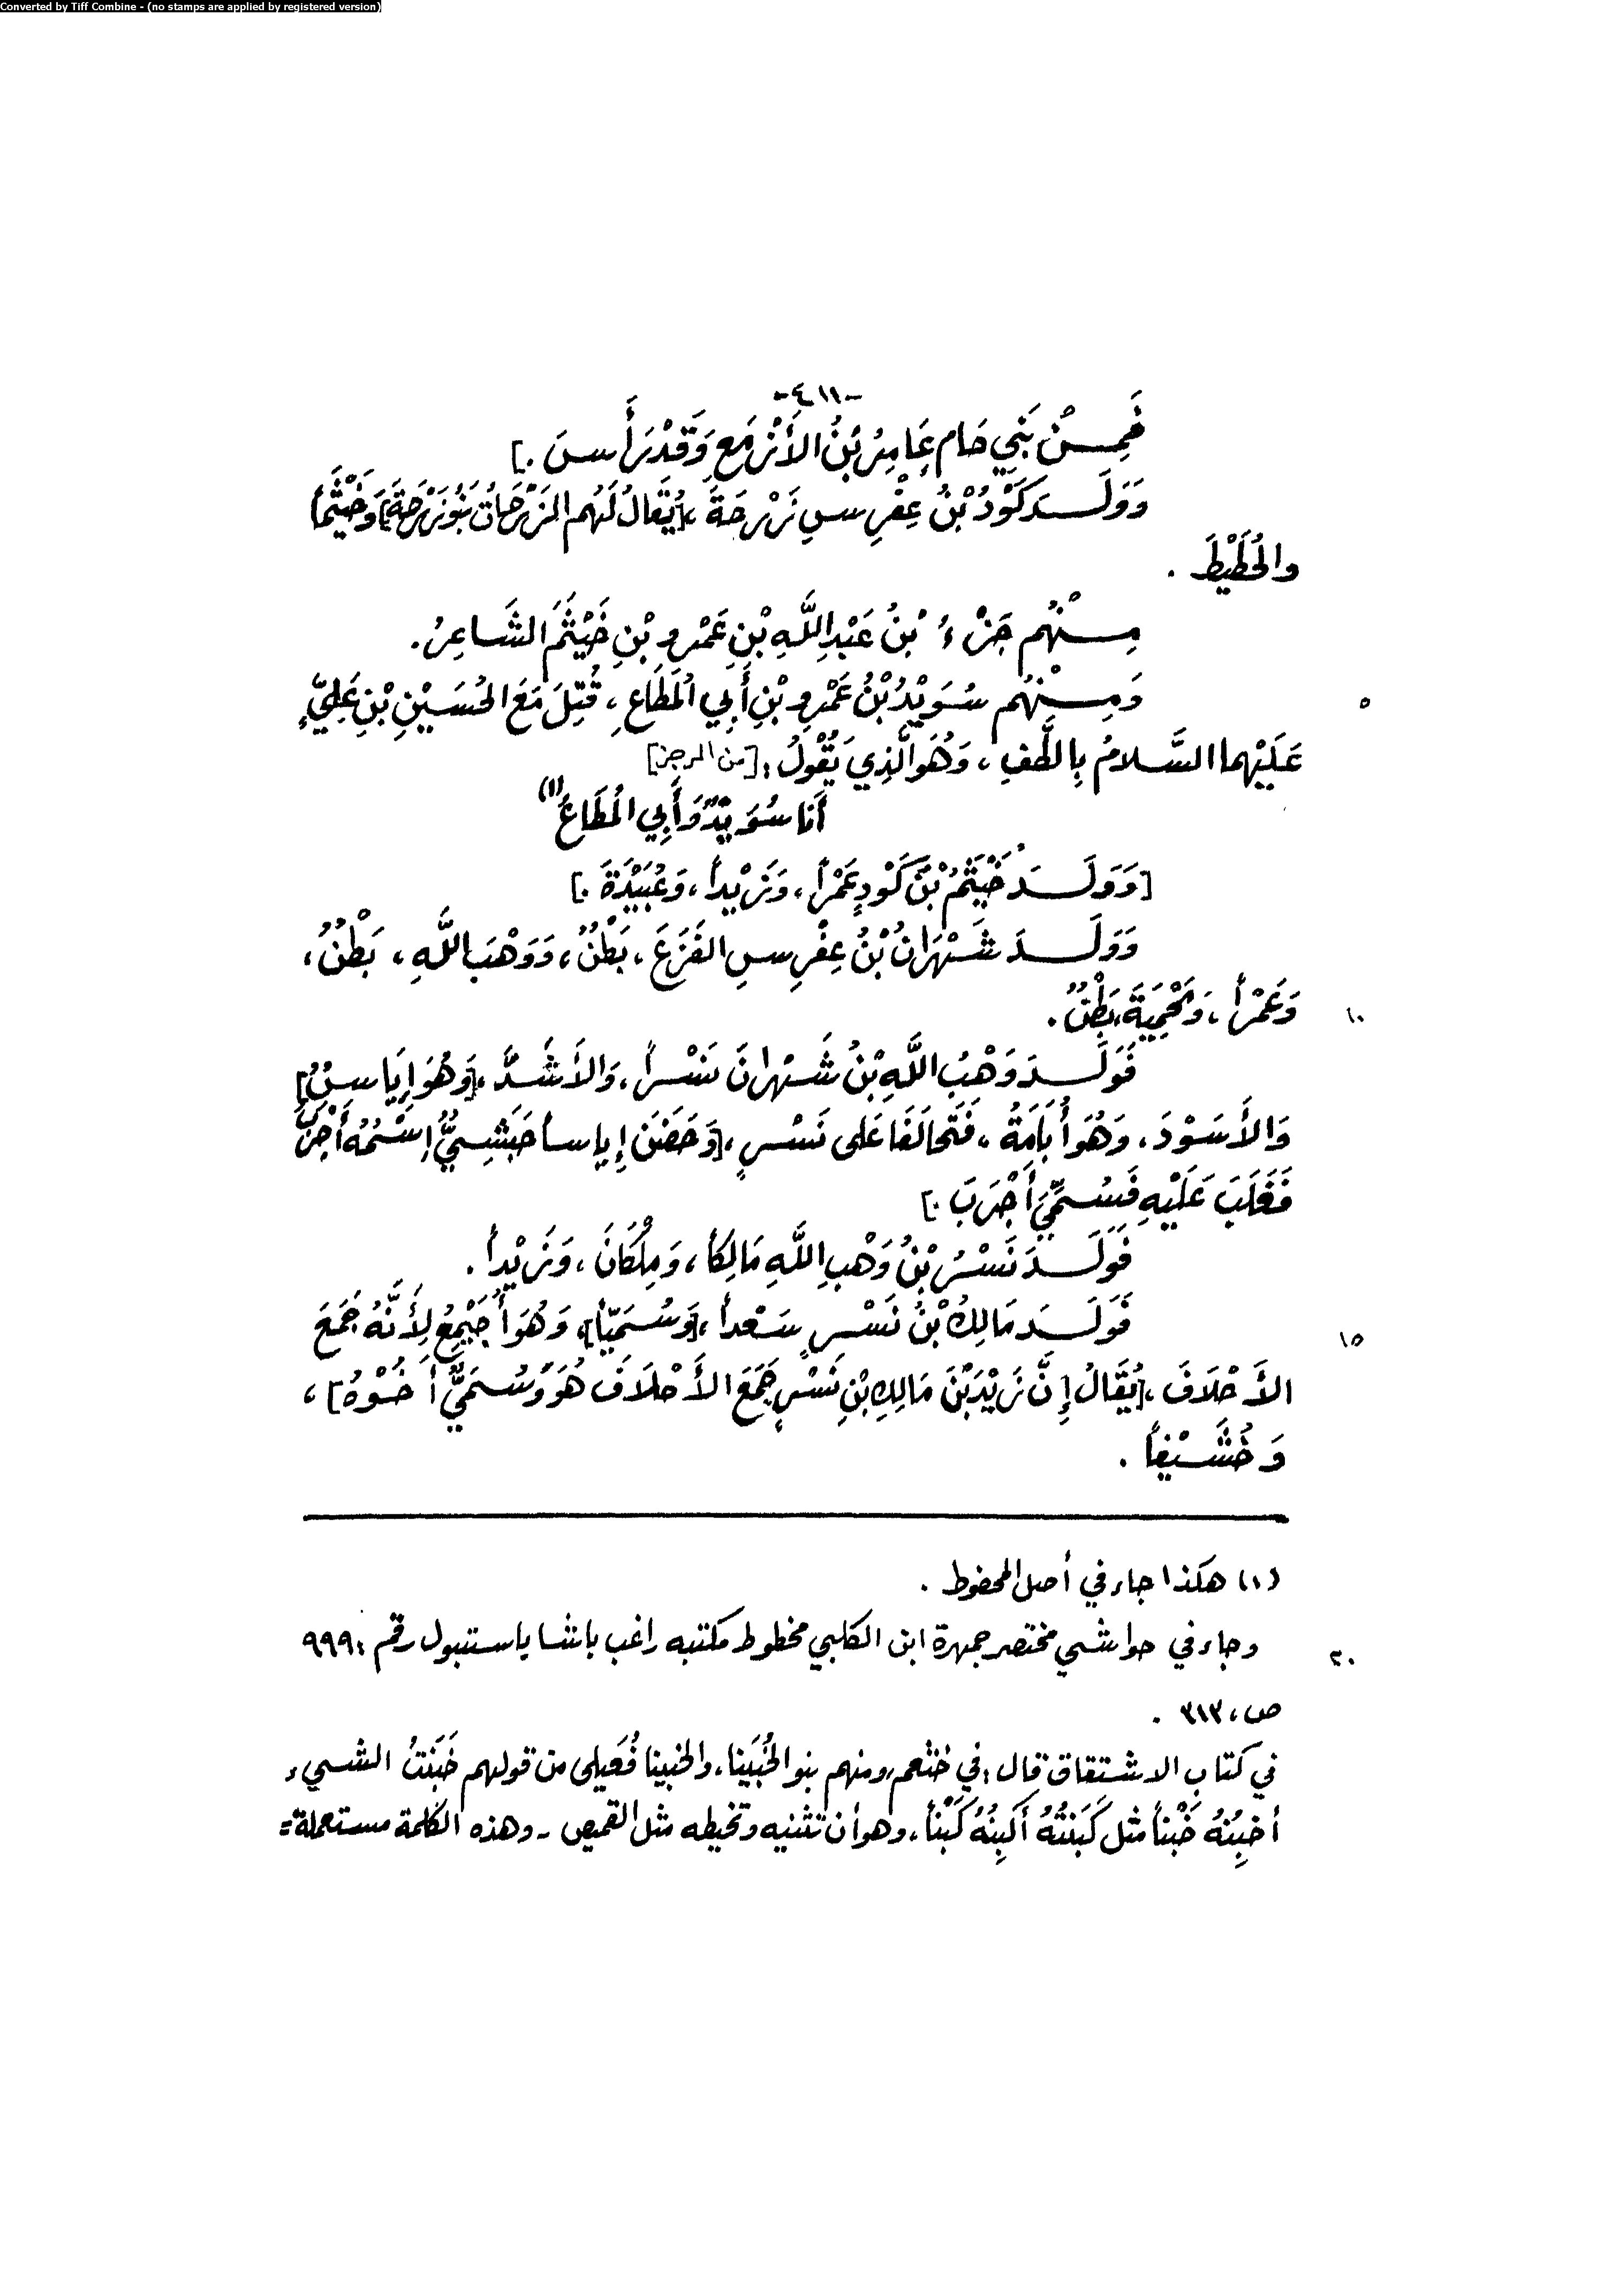 Converted by Tiff Combine - (no stamps are applied by registered version)
-٤١١-
فَمِنْ بَنِي حَام عَامِرُ بْنُ الأَزْمَعِ وَقَدْ رَأَسَ .]
وَوَلَدَ كَوْدُ بْنُ عِفْرِسِ زَرْحَةَ ،[يُقَالُ لَهُم الزَّرَحَاتُ بَنُو زَرْحَةَ]وَخَيْثَماً
والحُطَيْطَ .
مِنْهُم جَزْءُ بْنُ عَبْدِ اللَّهِ بْنِ عَمْرِو بْنِ خَيْثَمَ الشَّاعِرُ .
وَمِنْهُم سُوَيْدُ بْنُ عَمْرِو بْنِ أَبِي المُطَاعِ ، قُتِلَ مَعَ الحُسَيْنِ بْنِ عَلِيٍّ
٥
عَلَيْهِما السَّلامُ بِالطَّفِ ، وَهُوَ الَّذِي يَقُوْلُ : [من الرجز]
أَنَا سُوَيْدٌ وَأَبِي المُطَاعُ (١)
[وَوَلَدَ خَيْثَمُ بْنُ كَوْدٍ عَمْراً ، وَزَيْداً ، وَعُبَيْدَةَ .]
وَوَلَدَ شَهْرَانُ بْنُ عِفْرِسِ الفَزَعَ ، بَطْنٌ ، وَوَهْبَ اللَّهِ ، بَطْنٌ ،
وَعَمْراً ، وَمَحْمِيَةَ ، بَطْنٌ .
١٠
فَوَلَدَ وَهْبُ اللَّهِ بْنُ شَهْرَانَ نَسْراً ، وَالأَشَدَّ ، [وَهُوَ إِيَاسٌ]
وَالأَسْوَدَ ، وَهُوَ أُبَامَةُ ، فَتَحَالَفَا عَلى نَسْرٍ ، [وَحَضَنَ إِياساً حَبَشِيٌّ اِسْمُهُ أَجْرَبُ
فَغَلَبَ عَلَيْهِ فَسُمِّيَ أَجْرَبَ .]
فَوَلَدَ نَسْرُ بْنُ وَهْبِ اللَّهِ مَالِكاً ، وَمِلْكَانَ ، وَزَيْداً .
فَوَلَدَ مَالِكُ بْنُ نَسْرٍ سَعْداً ،[وَسُمَيّاً]، وَهُوَ أُجَيْمِعُ لِأَنَّهُ جَمَعَ
١٥
الأَحْلَافَ ،[يُقَالُ إِنَّ زَيْدَ بْنَ مَالِكِ بْنِ نَسْرٍ جَمَعَ الأَحْلَافَ هُوَ وَسُمَيٌّ أَخُوْهُ] ،
وَخُشَيْفاً .
(١) هكذا جاء في أصل المخطوط .
وجاء في حواشي مختصر جمهرة ابن الكلبي مخطوط مكتبه راغب باشا باستنبول رقم : ٩٩٩
٢٠
ص ، ٣١٣ .
في كتاب الاشتقاق قال : في خثعم ومنهم بنو الخُبَينا ، والخبينا فُعَيلى من قولهم خَبَنتُ الشيء
أخبِنُهُ خَبْناً مثل كَبَنتُهُ أكبِنُهُ كَبْناً ، وهو أن تثنيه وتخيطه مثل القميص - وهذه الكلمة مستعملة =